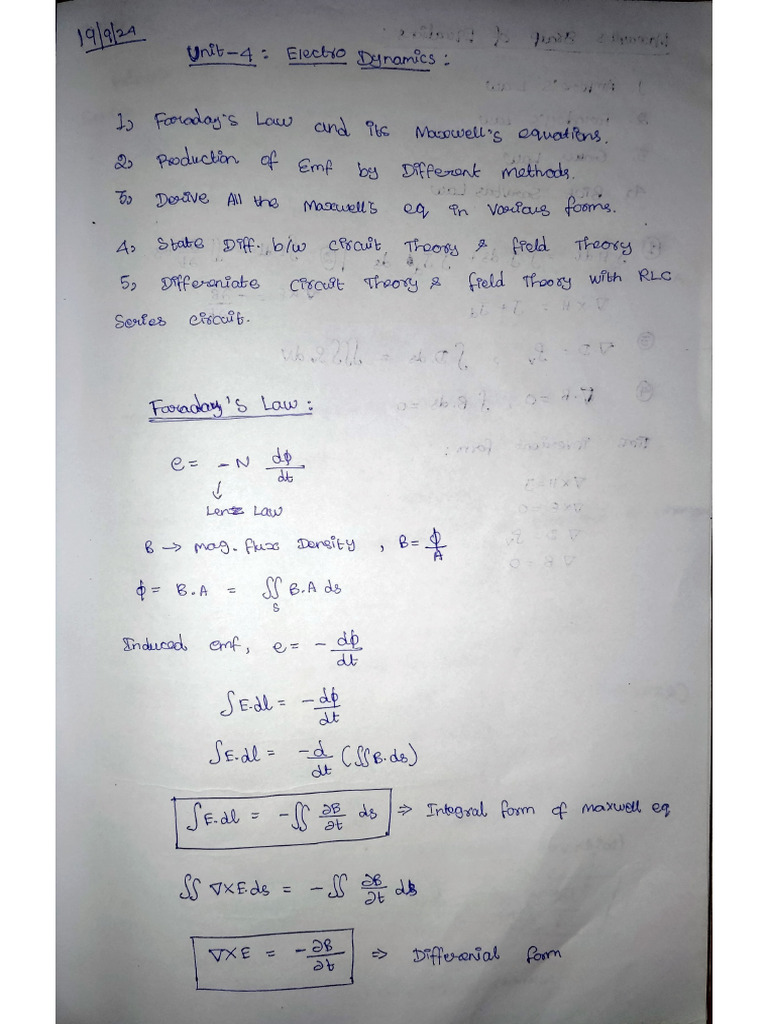 19/9/24
Unit-4 : Electro Dynamics :
1) Faraday's Law and its Maxwell's equations.
2) Production of Emf by Different methods.
3) Derive All the Maxwell's eq in various forms.
4) State Diff. b/w circuit Theory & field Theory
5) Differeniate circuit Theory & field Theory with RLC
Series circuit.
Faraday's Law :
e = -N dϕ/dt
↓
Lenz Law
B → mag. flux Density , B = ϕ/A
ϕ = B.A = ∬_S B.A ds
Induced emf, e = - dϕ/dt
∫E.dl = - dϕ/dt
∫E.dl = -d/dt (∬B.ds)
∫E.dl = -∬ ∂B/∂t ds ⇒ Integral form of maxwell eq
∬ ∇×E.ds = -∬ ∂B/∂t ds
∇×E = -∂B/∂t ⇒ Differenial form